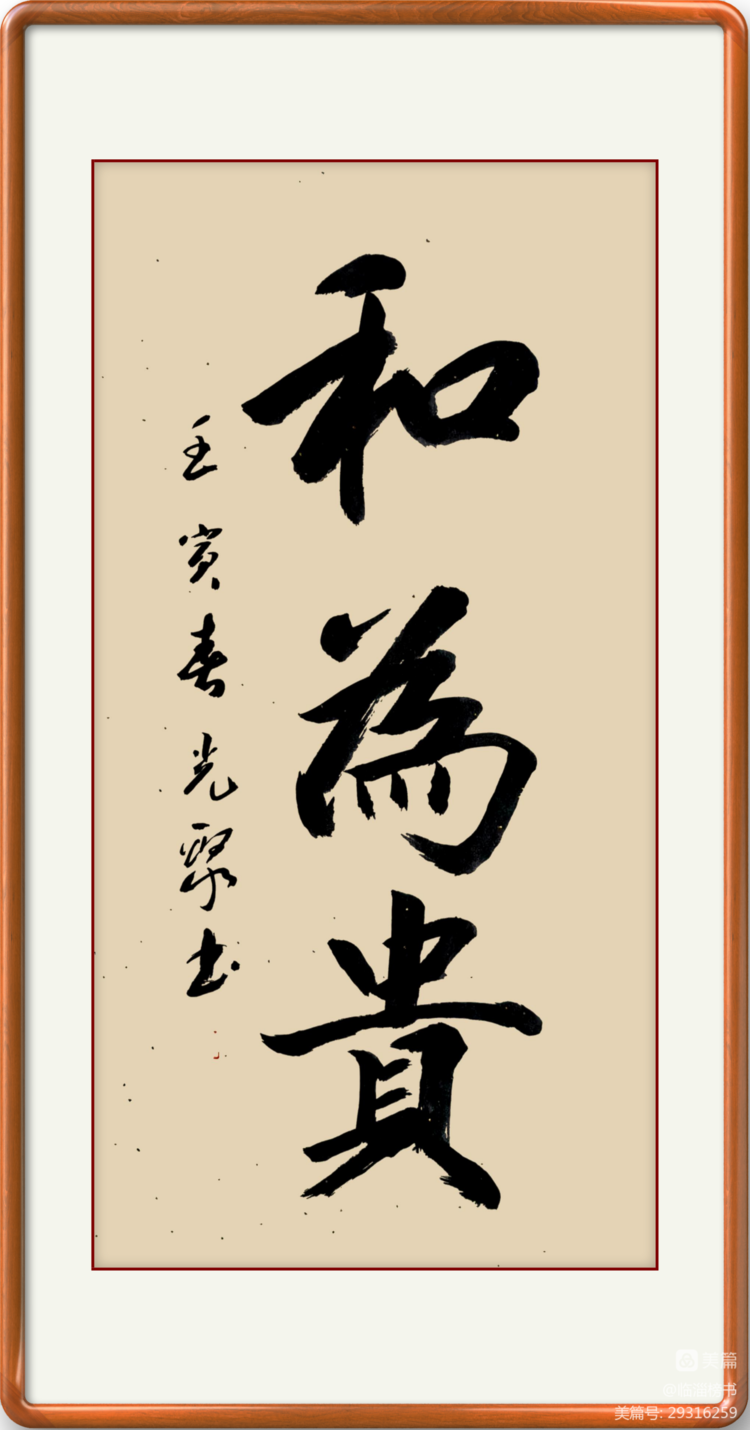 和為貴
壬寅春光聚书
美篇
美篇号: 29316259